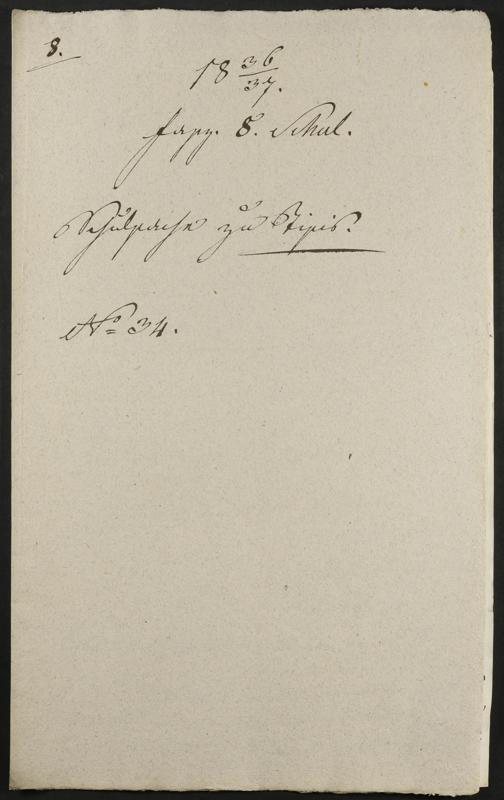 8.
18 36/37.
Fasz. 8. Schul.
Schulsache zu
No 34.